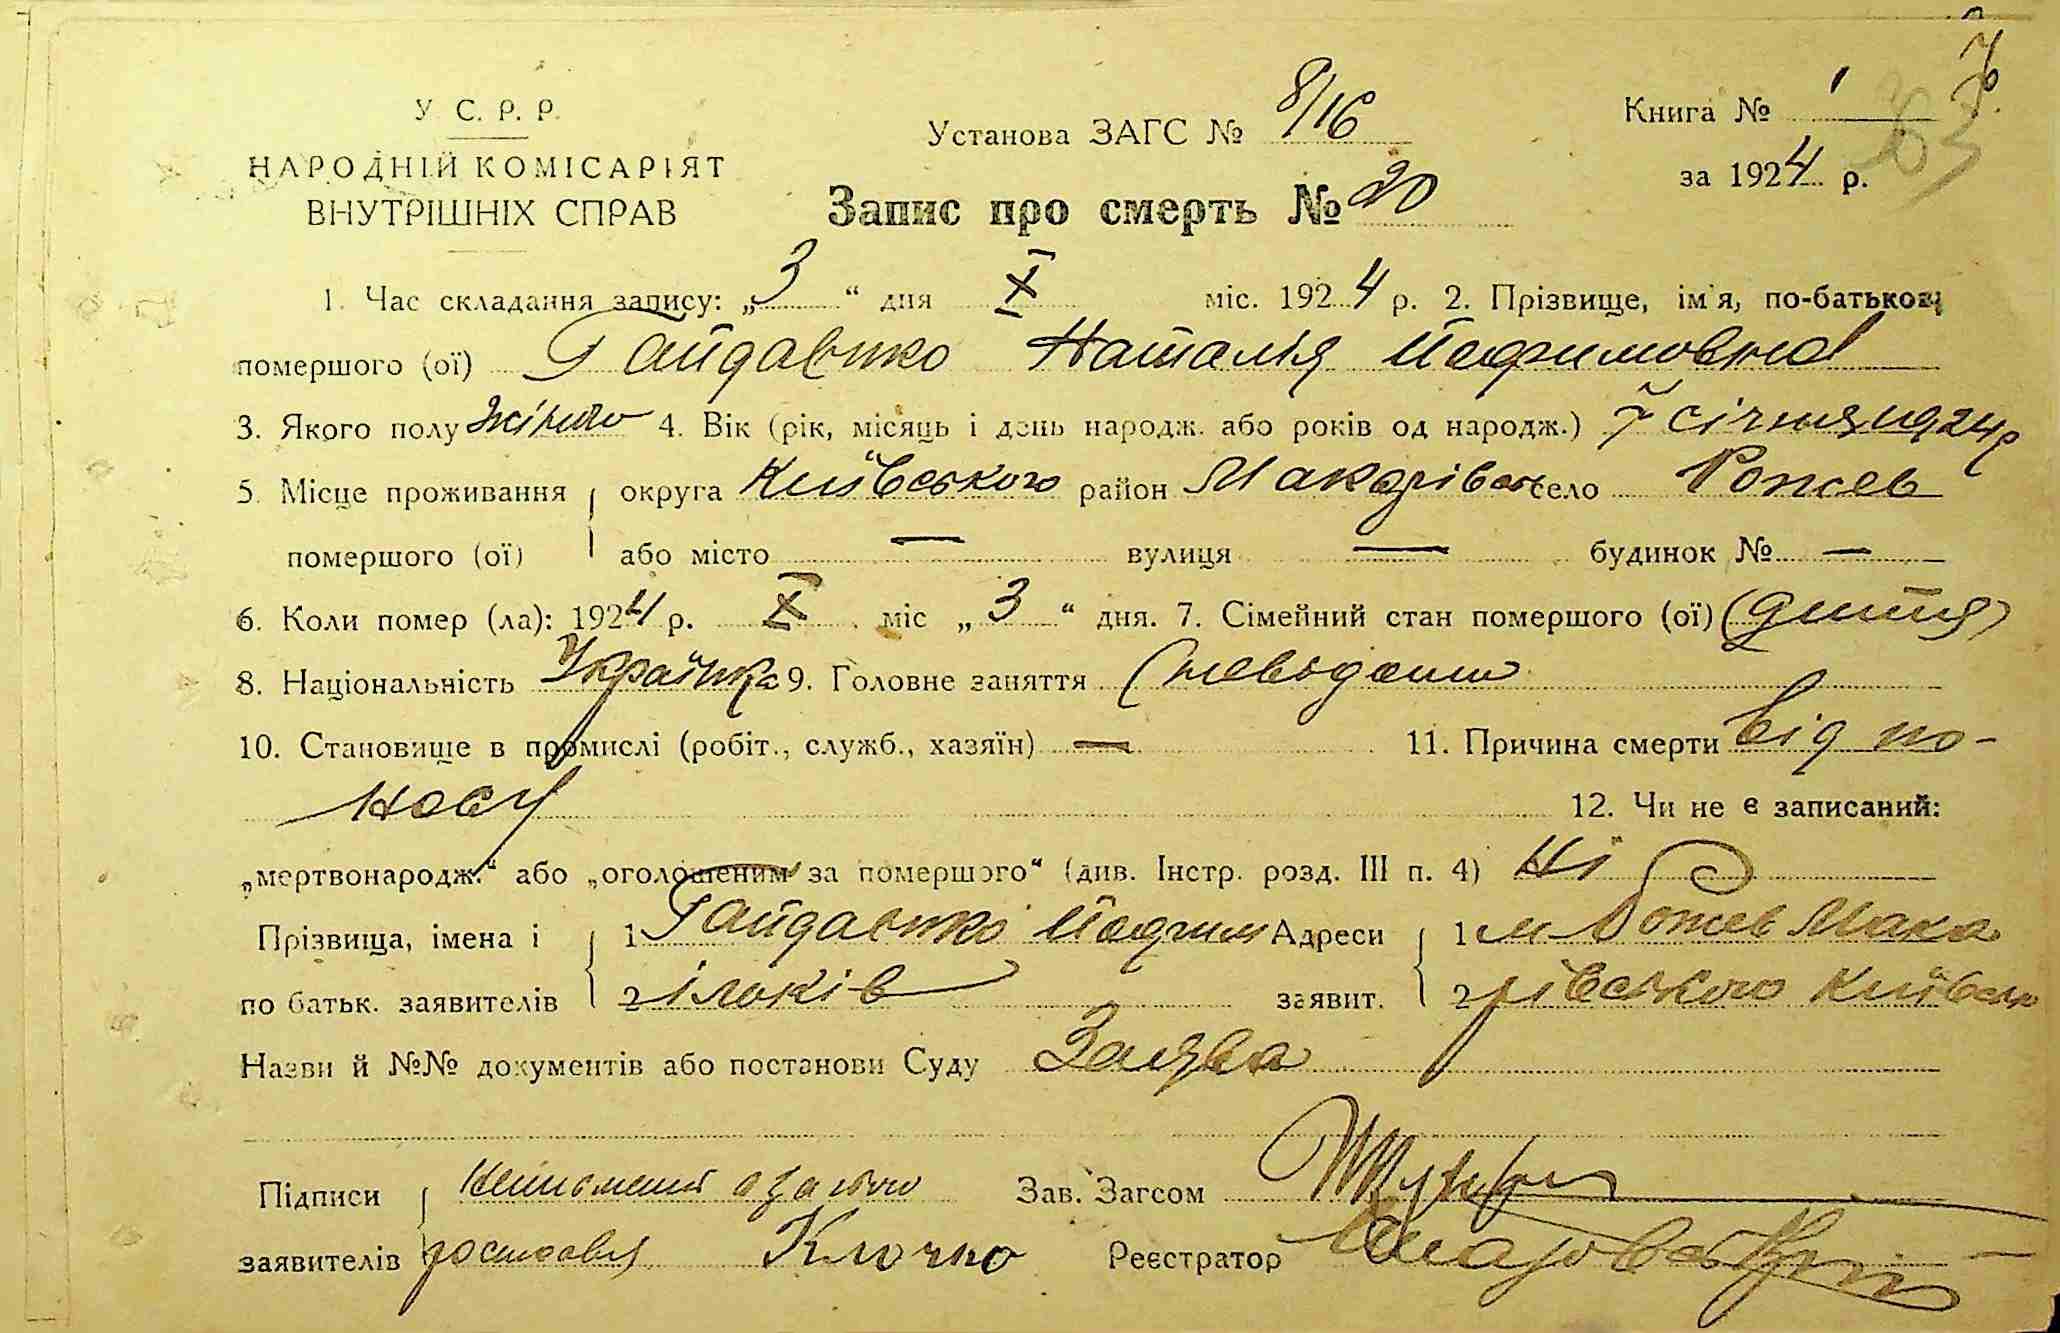 У. С. Р. Р.
НАРОДНІЙ КОМІСАРІЯТ
ВНУТРІШНІХ СПРАВ
Установа ЗАГС № 8/16
Книга № 1
за 1924 р.
Запис про смерть № 20
1. Час складання запису: „3“ дня X міс. 1924 р. 2. Прізвище, ім'я, по-батькови
помершого (ої) Гайдаєнко Наталія Йосифимовна
3. Якого полу жіного 4. Вік (рік, місяць і день народж. або років од народж.) 7 січня 1924 р
5. Місце проживання округа Київського район Макарівськ село Рожев
помершого (ої) або місто — вулиця — будинок № —
6. Коли помер (ла): 1924 р. X міс „3“ дня. 7. Сімейний стан помершого (ої) (дитя)
8. Національність Українка 9. Головне заняття
10. Становище в промислі (робіт., служб., хазяїн) — 11. Причина смерти від по-
носу 12. Чи не є записаний:
„мертвонародж.“ або „оголошеним за помершого“ (див. Інстр. розд. III п. 4) Ні
Прізвища, імена і 1 Гайдаєнко Адреси 1 м Рожев Мака
по батьк. заявителів 2 заявит. 2 рівського Київськ
Назви й №№ документів або постанови Суду Заява
Підписи Зав. Загсом
заявителів Клочко Реєстратор